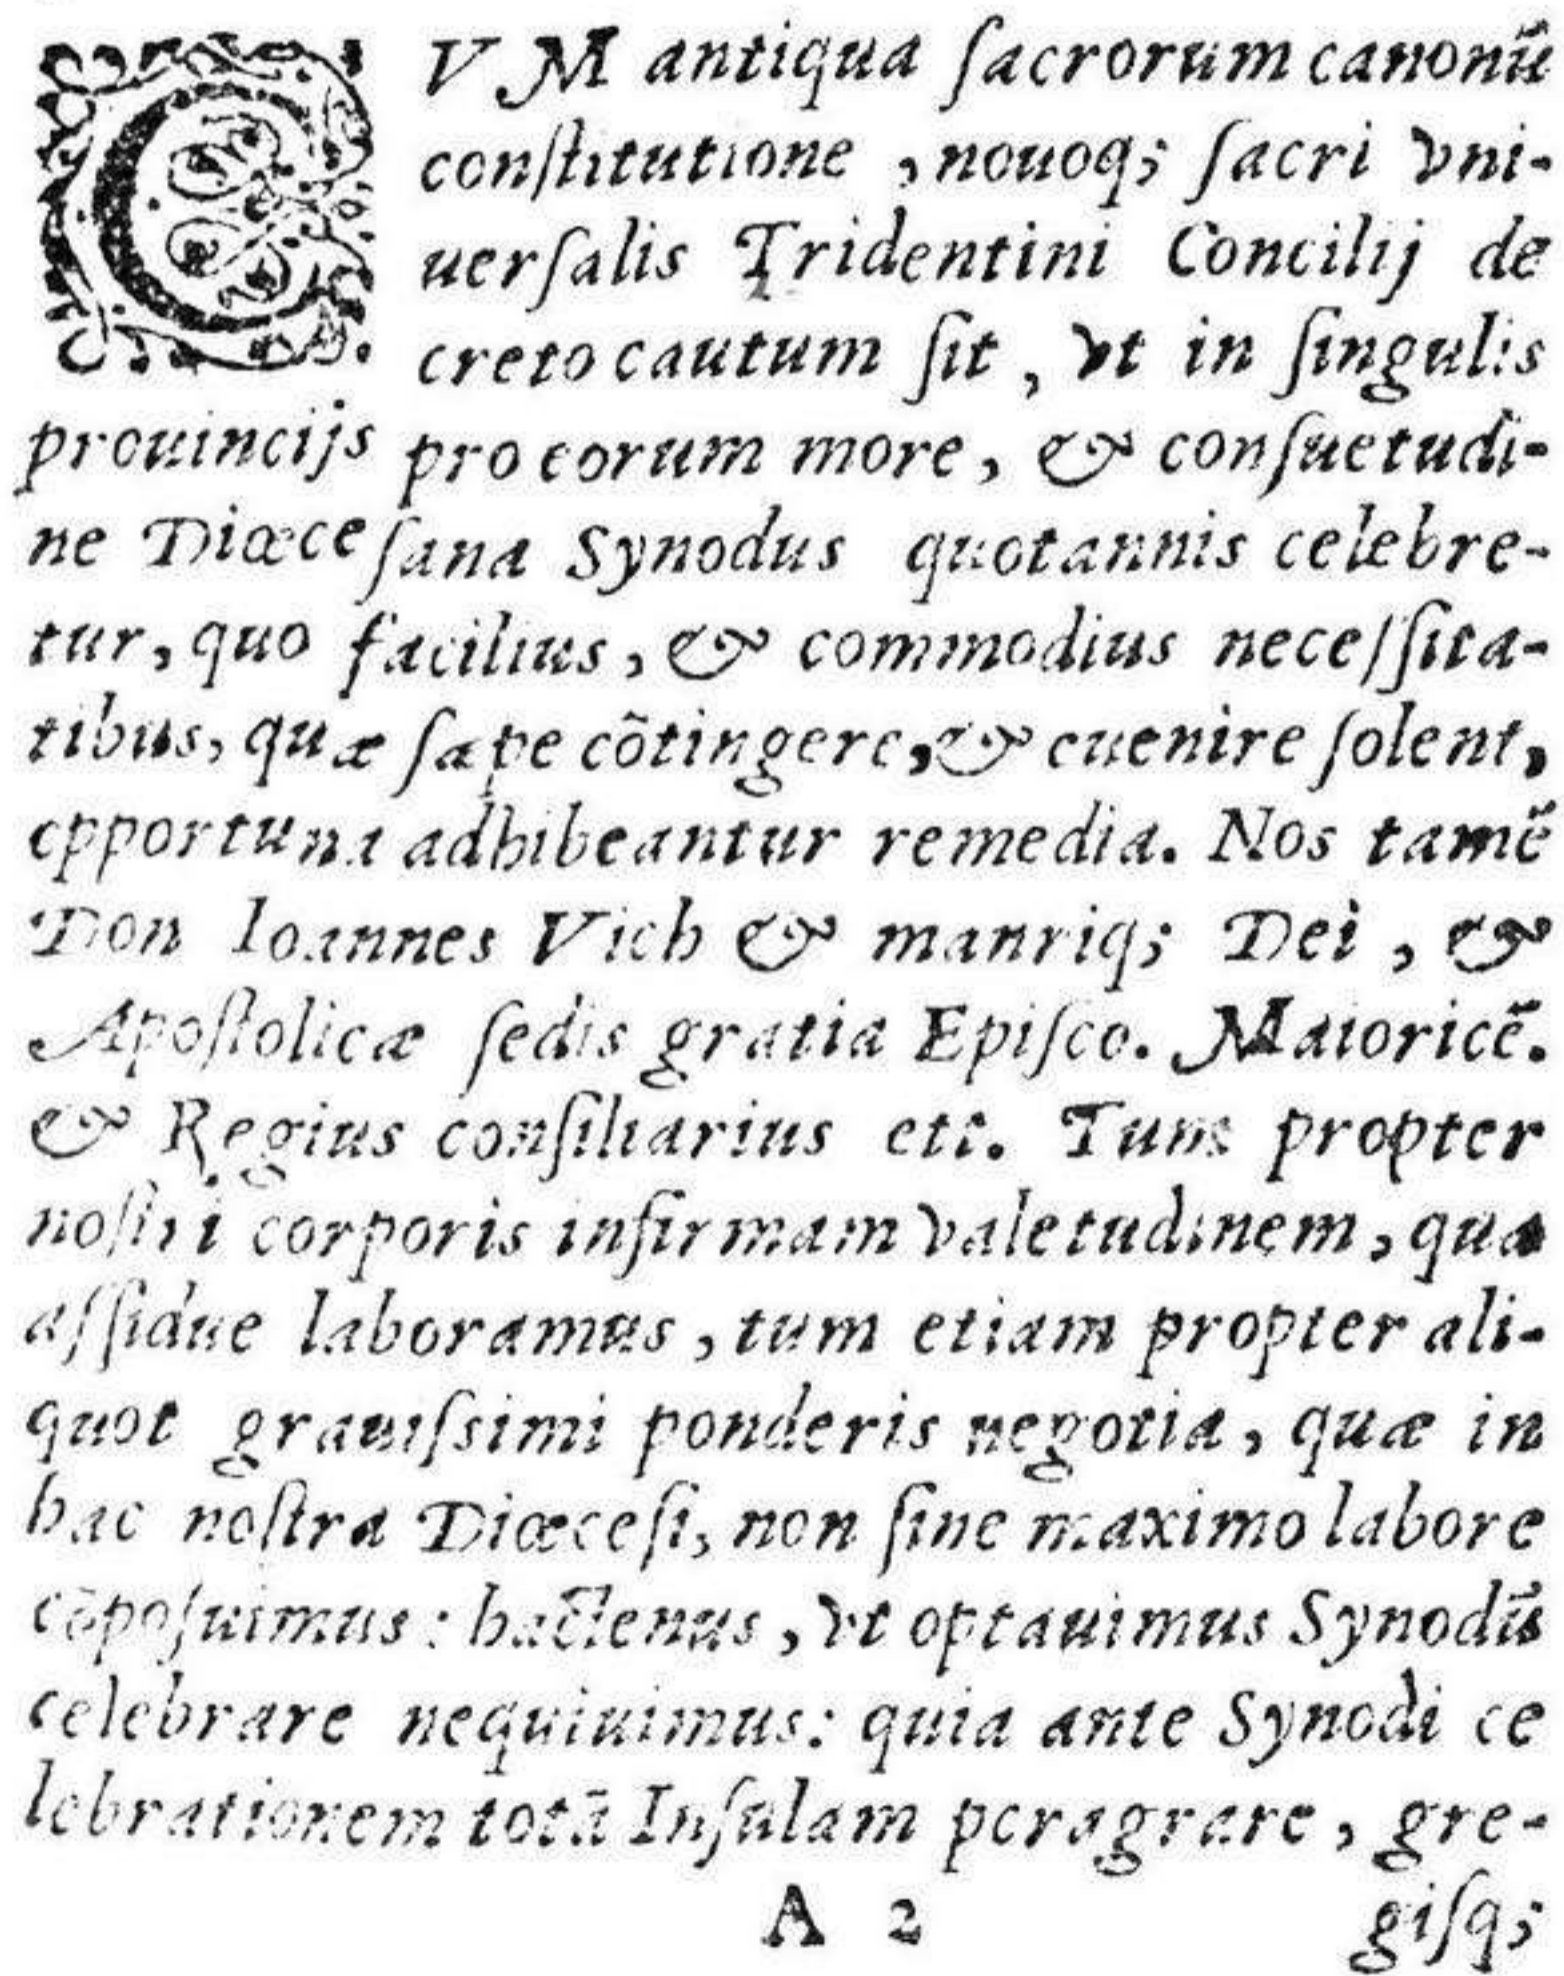 CVM antiqua ſacrorum canonũ
conſtitutione , nouoq; ſacri vni-
uerſalis Tridentini Concilij de
creto cautum ſit , vt in ſingulis
prouincijs pro eorum more, & conſuetudi-
ne Diœceſana Synodus quotannis celebre-
tur, quo facilius, & commodius neceſſita-
tibus, quæ ſæpe cõtingere, & euenire ſolent,
opportuna adhibeantur remedia. Nos tamẽ
Don Ioannes Vich & manriq; Dei , &
Apoſtolicæ ſedis gratia Epiſco. Maioricẽ.
& Regius conſiliarius etc. Tum propter
noſtri corporis infirmam valetudinem, qua
aſſidue laboramus, tum etiam propter ali-
quot grauiſsimi ponderis negotia, quæ in
hac noſtra Diœceſi, non ſine maximo labore
cõpoſuimus: hactenus, vt optauimus Synodũ
celebrare nequiuimus: quia ante Synodi ce
lebrationem totã Inſulam peragrare, gre-
A 2 giſq;